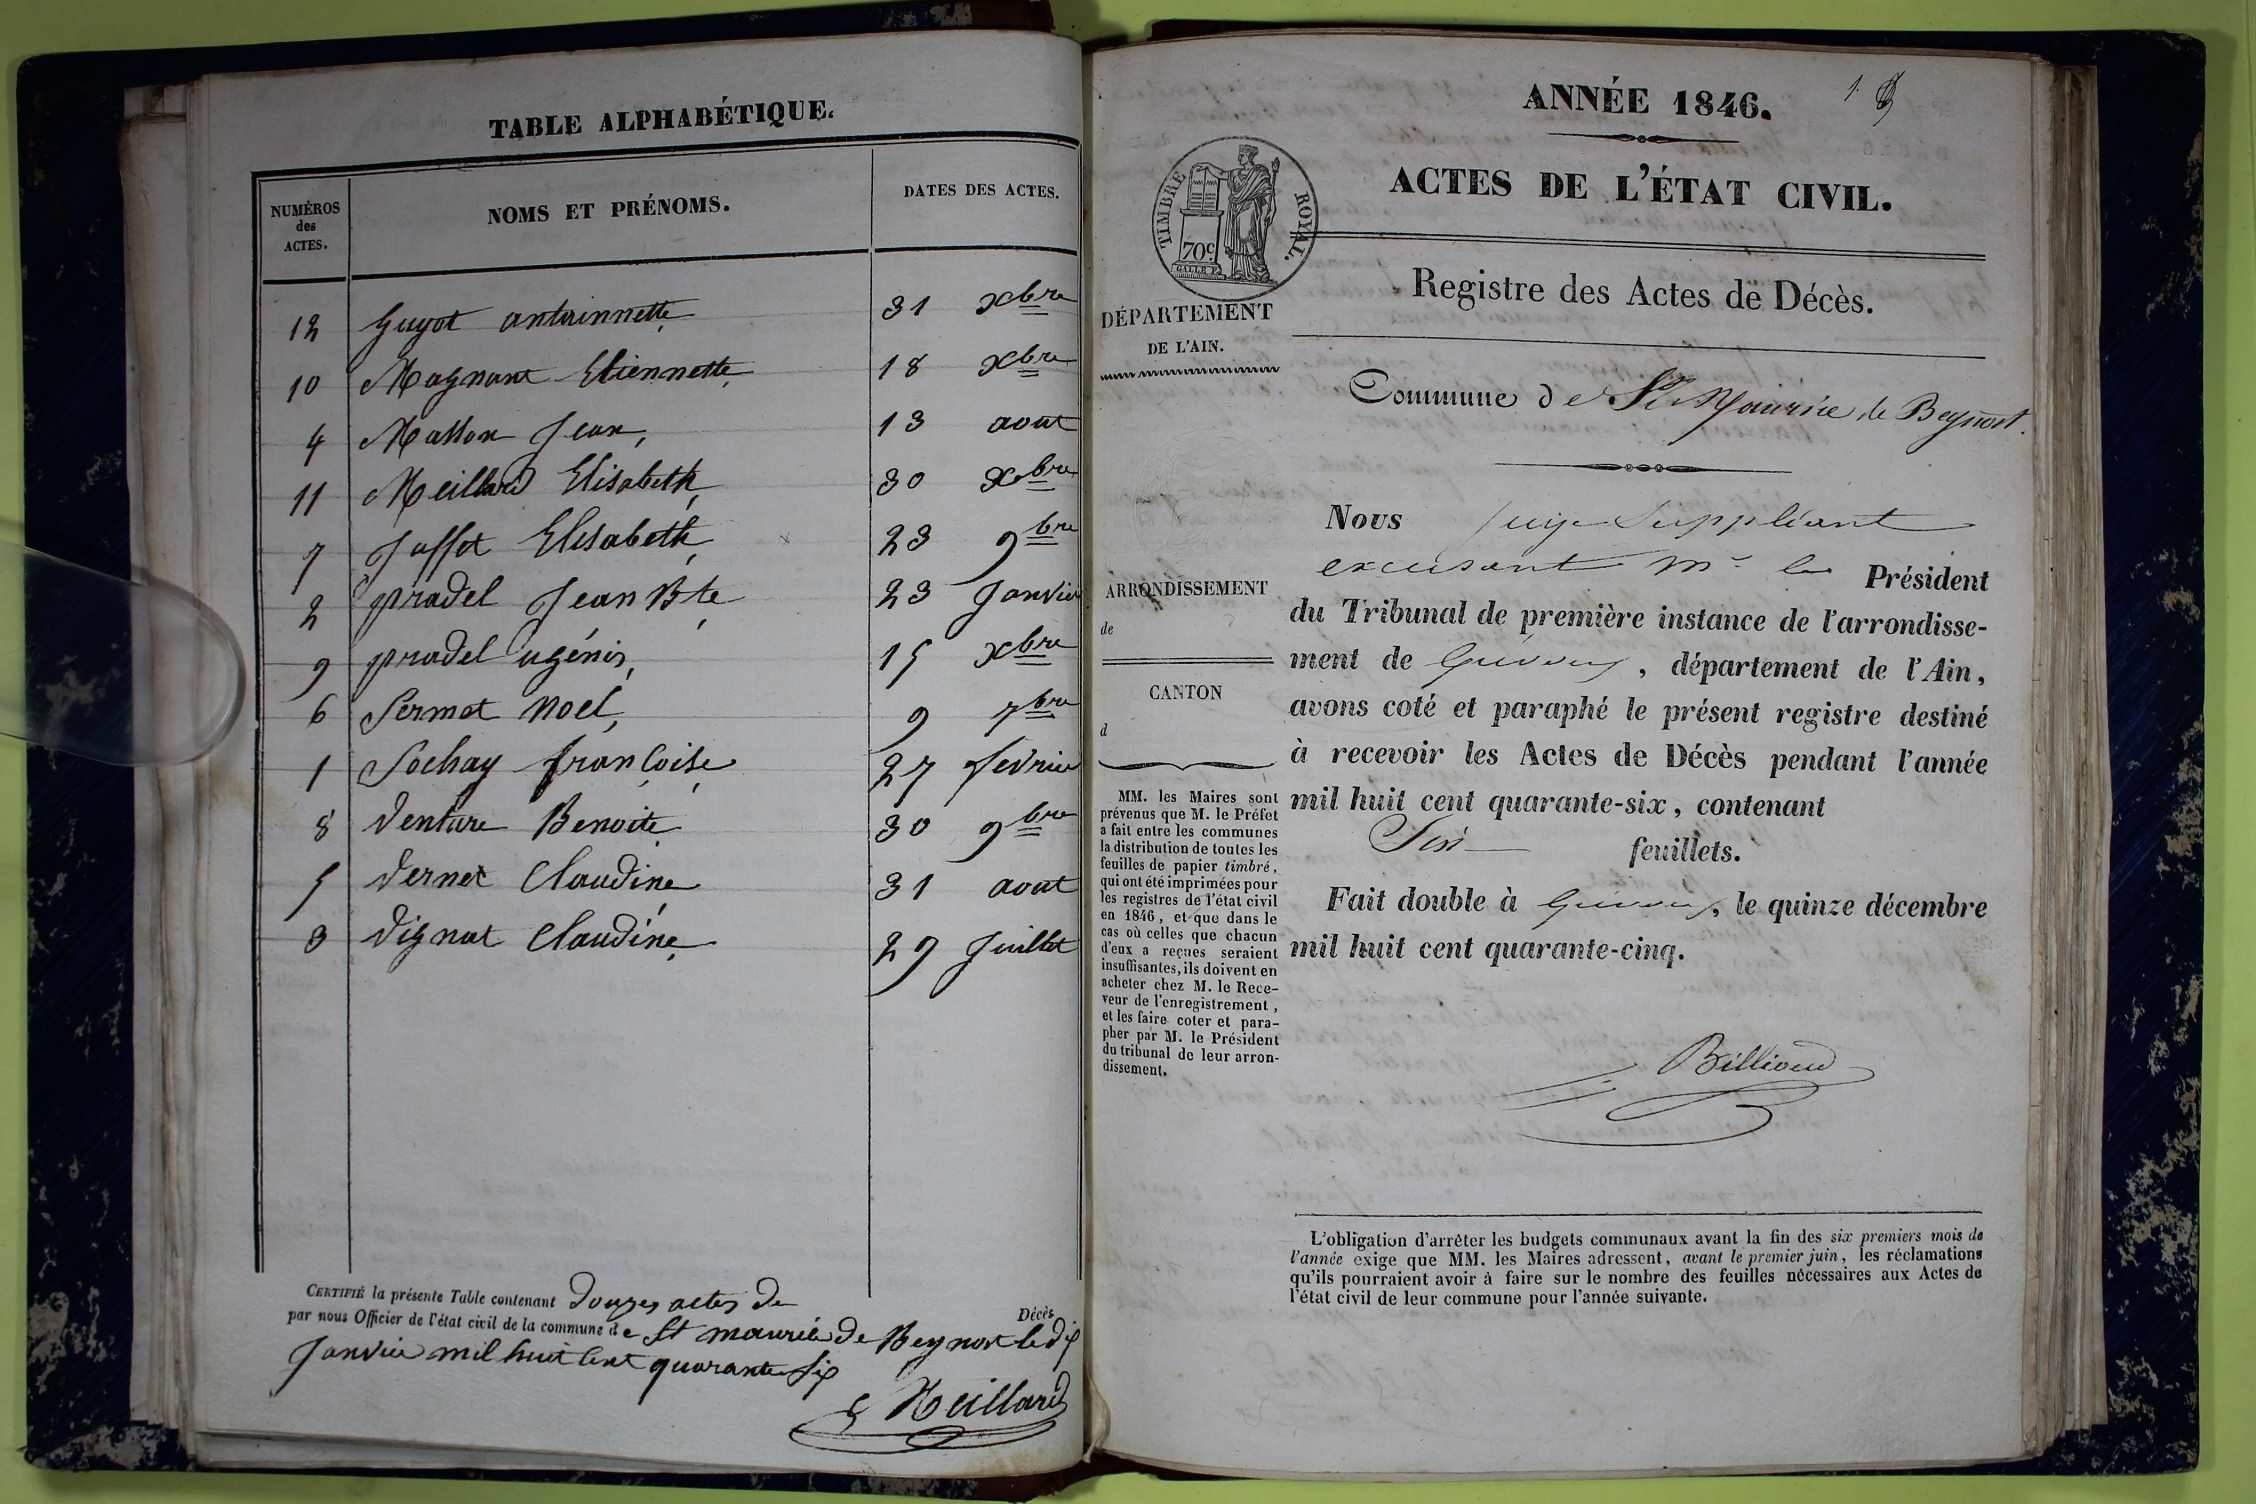 TABLE ALPHABÉTIQUE.
NUMÉROS des ACTES. NOMS ET PRÉNOMS. DATES DES ACTES.
12 Guyot antoinnette 31 Xbre
10 Magnant Etiennette 18 Xbre
4 Masson Jean 13 aout
11 Meillard Elisabeth 30 Xbre
7 Elisabeth 23 9bre
2 pradel Jean Bte 23 Janvier
9 pradel ugénie 15 Xbre
6 Sermet Noel 9 7bre
1 Sochay françoise 27 fevrier
8 Venture Benoite 30 9bre
5 Vernet Claudine 31 aout
3 Vignat Claudine 29 Juillet
CERTIFIÉ la présente Table contenant douzes actes de Décès
par nous Officier de l'état civil de la commune de St maurice de Beynost le dix
Janvier mil huit cent quarante six
Meillard
1.
ANNÉE 1846.
ACTES DE L'ÉTAT CIVIL.
TIMBRE ROYAL.
70c
GALLE F.
Registre des Actes de Décès.
DÉPARTEMENT
DE L'AIN.
Commune de St Maurice de Beynost.
ARRONDISSEMENT
de
CANTON
d
MM. les Maires sont
prévenus que M. le Préfet
a fait entre les communes
la distribution de toutes les
feuilles de papier timbré,
qui ont été imprimées pour
les registres de l'état civil
en 1846, et que dans le
cas où celles que chacun
d'eux a reçues seraient
insuffisantes, ils doivent en
acheter chez M. le Rece-
veur de l'enregistrement,
et les faire coter et para-
pher par M. le Président
du tribunal de leur arron-
dissement.
Nous Juge Suppléant
excusant Mr le Président
du Tribunal de première instance de l'arrondisse-
ment de Trévoux, département de l'Ain,
avons coté et paraphé le présent registre destiné
à recevoir les Actes de Décès pendant l'année
mil huit cent quarante-six, contenant
Six feuillets.
Fait double à Trévoux, le quinze décembre
mil huit cent quarante-cinq.
Billioud
L'obligation d'arrêter les budgets communaux avant la fin des six premiers mois de
l'année exige que MM. les Maires adressent, avant le premier juin, les réclamations
qu'ils pourraient avoir à faire sur le nombre des feuilles nécessaires aux Actes de
l'état civil de leur commune pour l'année suivante.